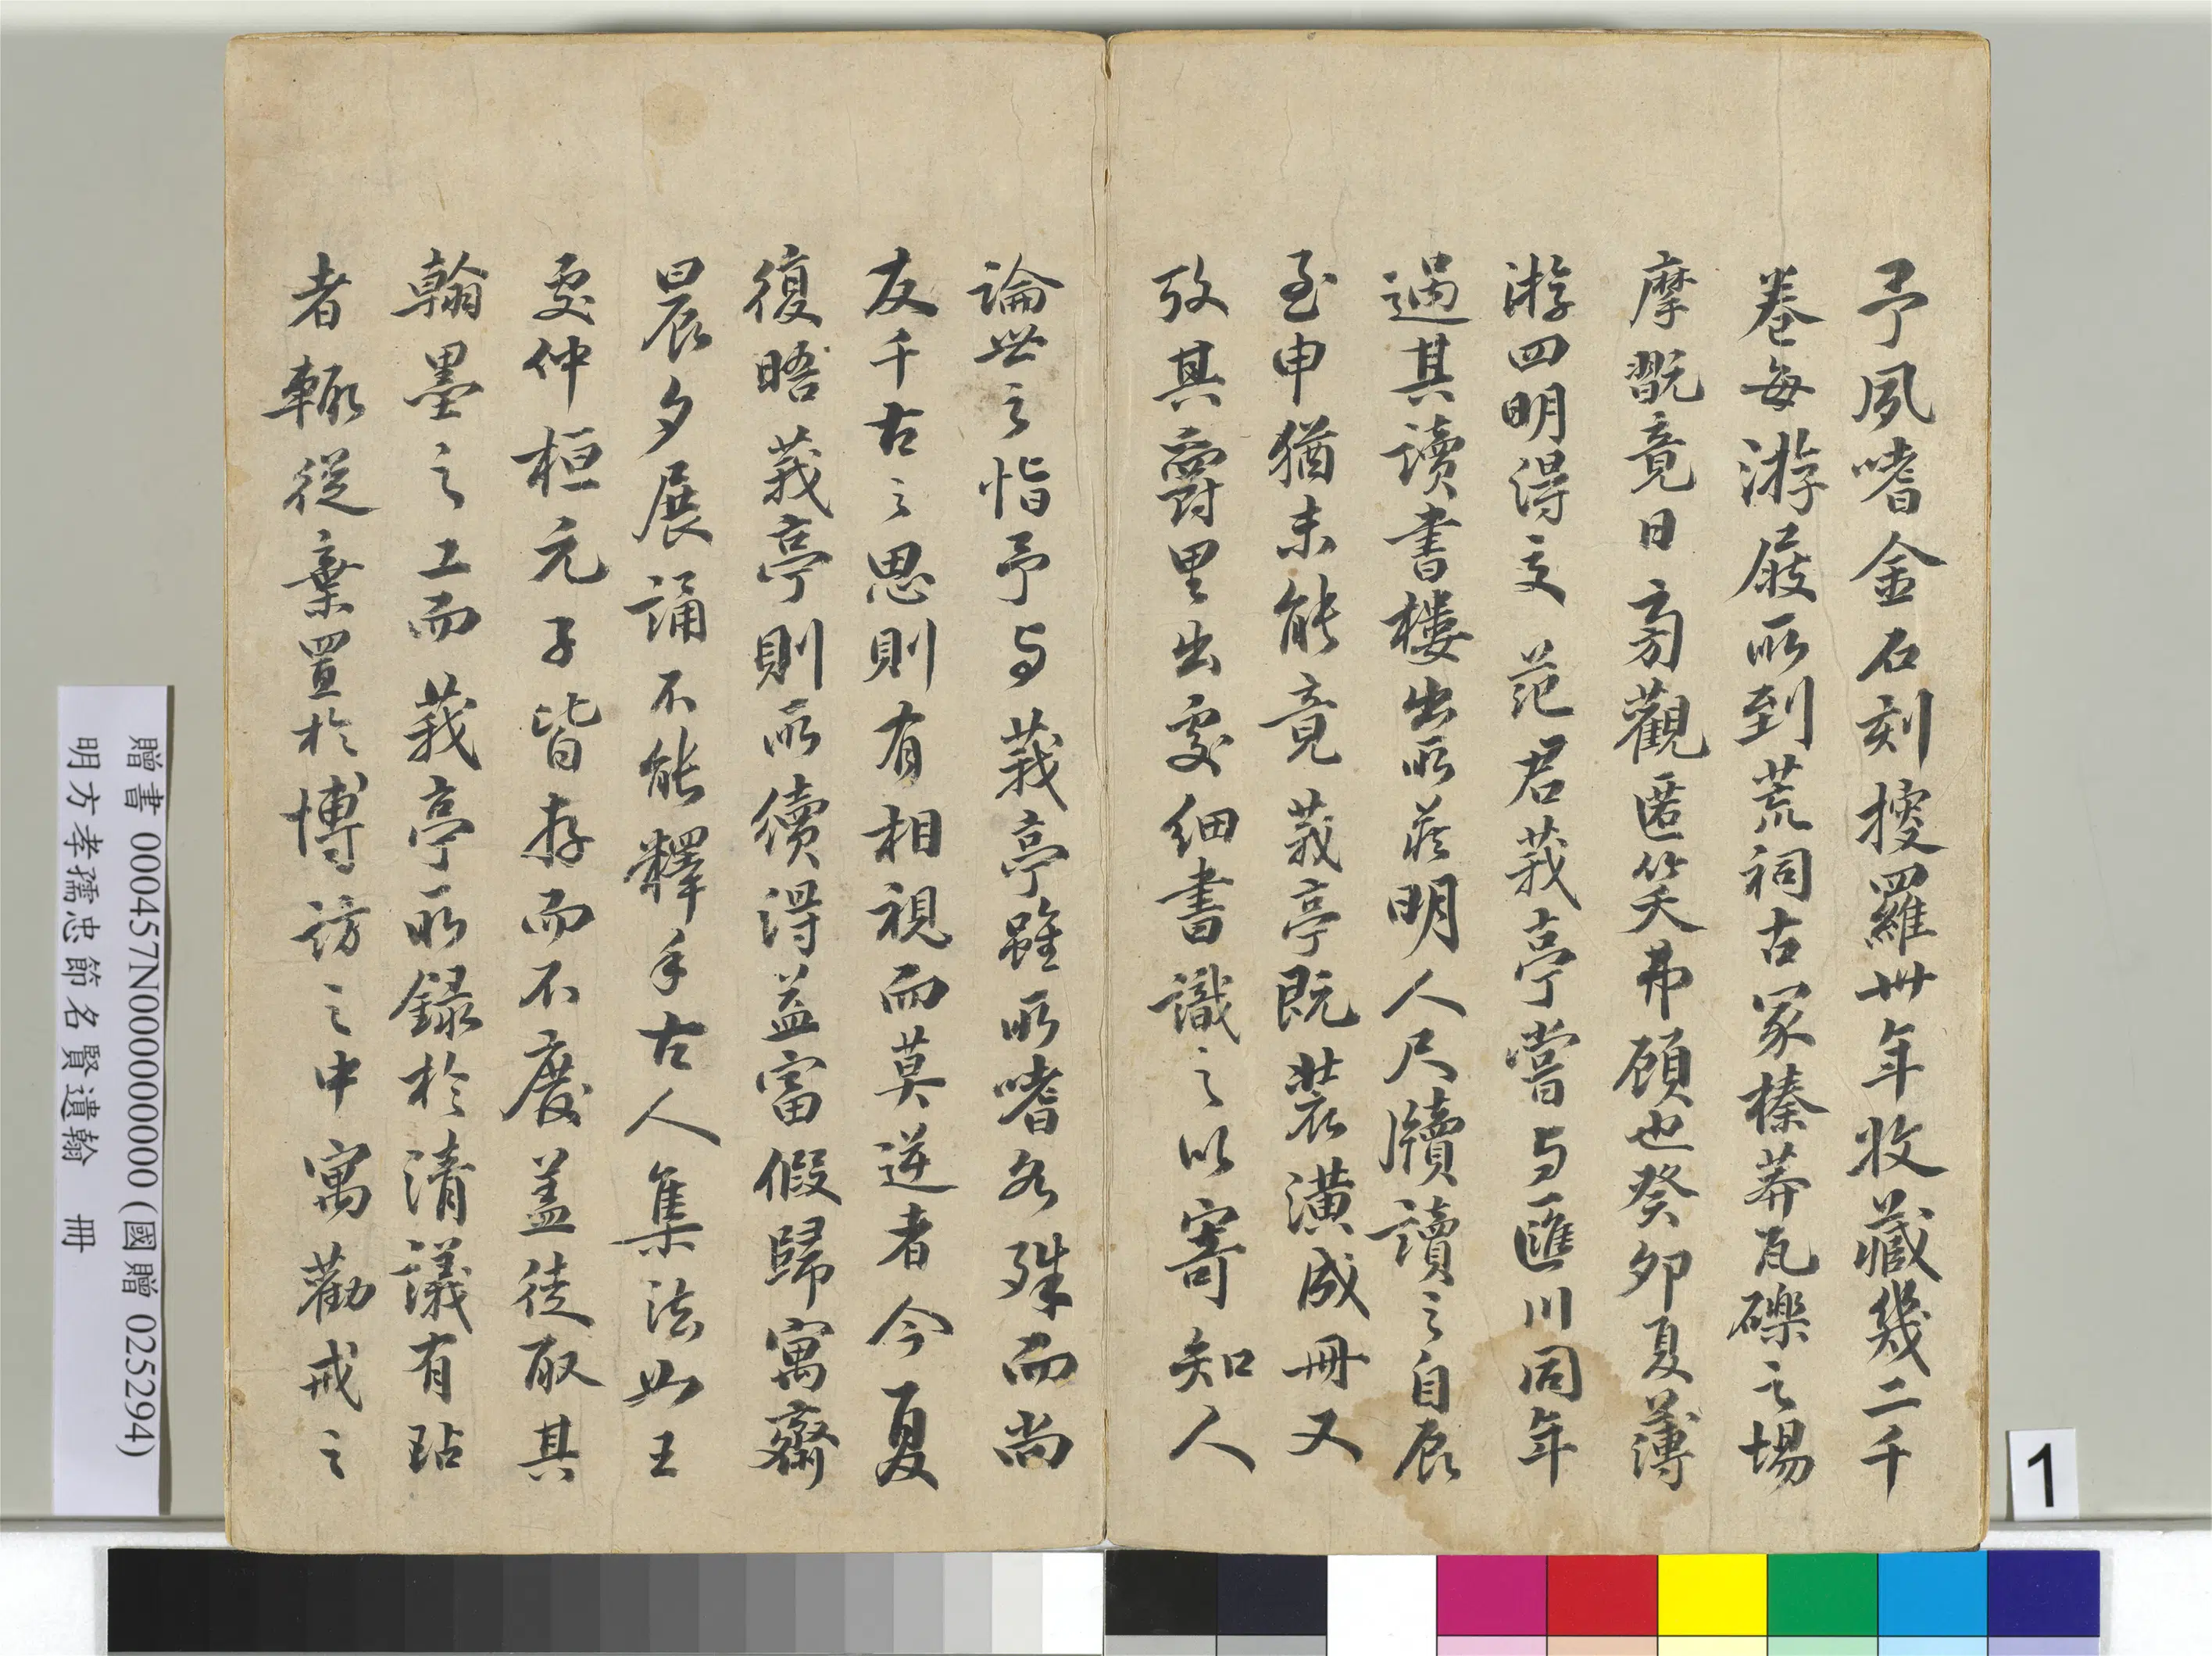 予夙嗜金石刻搜羅卅年收藏幾二千
卷每游屐所到荒祠古冢榛莽瓦礫之場
摩翫竟日旁觀匿笑弗顧也癸卯夏薄
游四明得交 范君莪亭嘗与匯川同年
過其讀書樓出所藏明人尺牘讀之自辰
至申猶未能竟莪亭既裝潢成冊又
攷其爵里出處細書識之以寄知人
論世之恉予与莪亭雖所嗜各殊而尚
友千古之思則有相視而莫逆者今夏
復晤莪亭則所續得益富假歸寓齋
晨夕展誦不能釋手古人集法如王
處仲桓元子皆存而不廢蓋徒取其
翰墨之工而莪亭所録於清議有玷
者輒從棄置於博訪之中寓勸戒之
贈書 000457N000000000000 (國贈 025294)
明方孝孺忠節名賢遺翰 冊
1